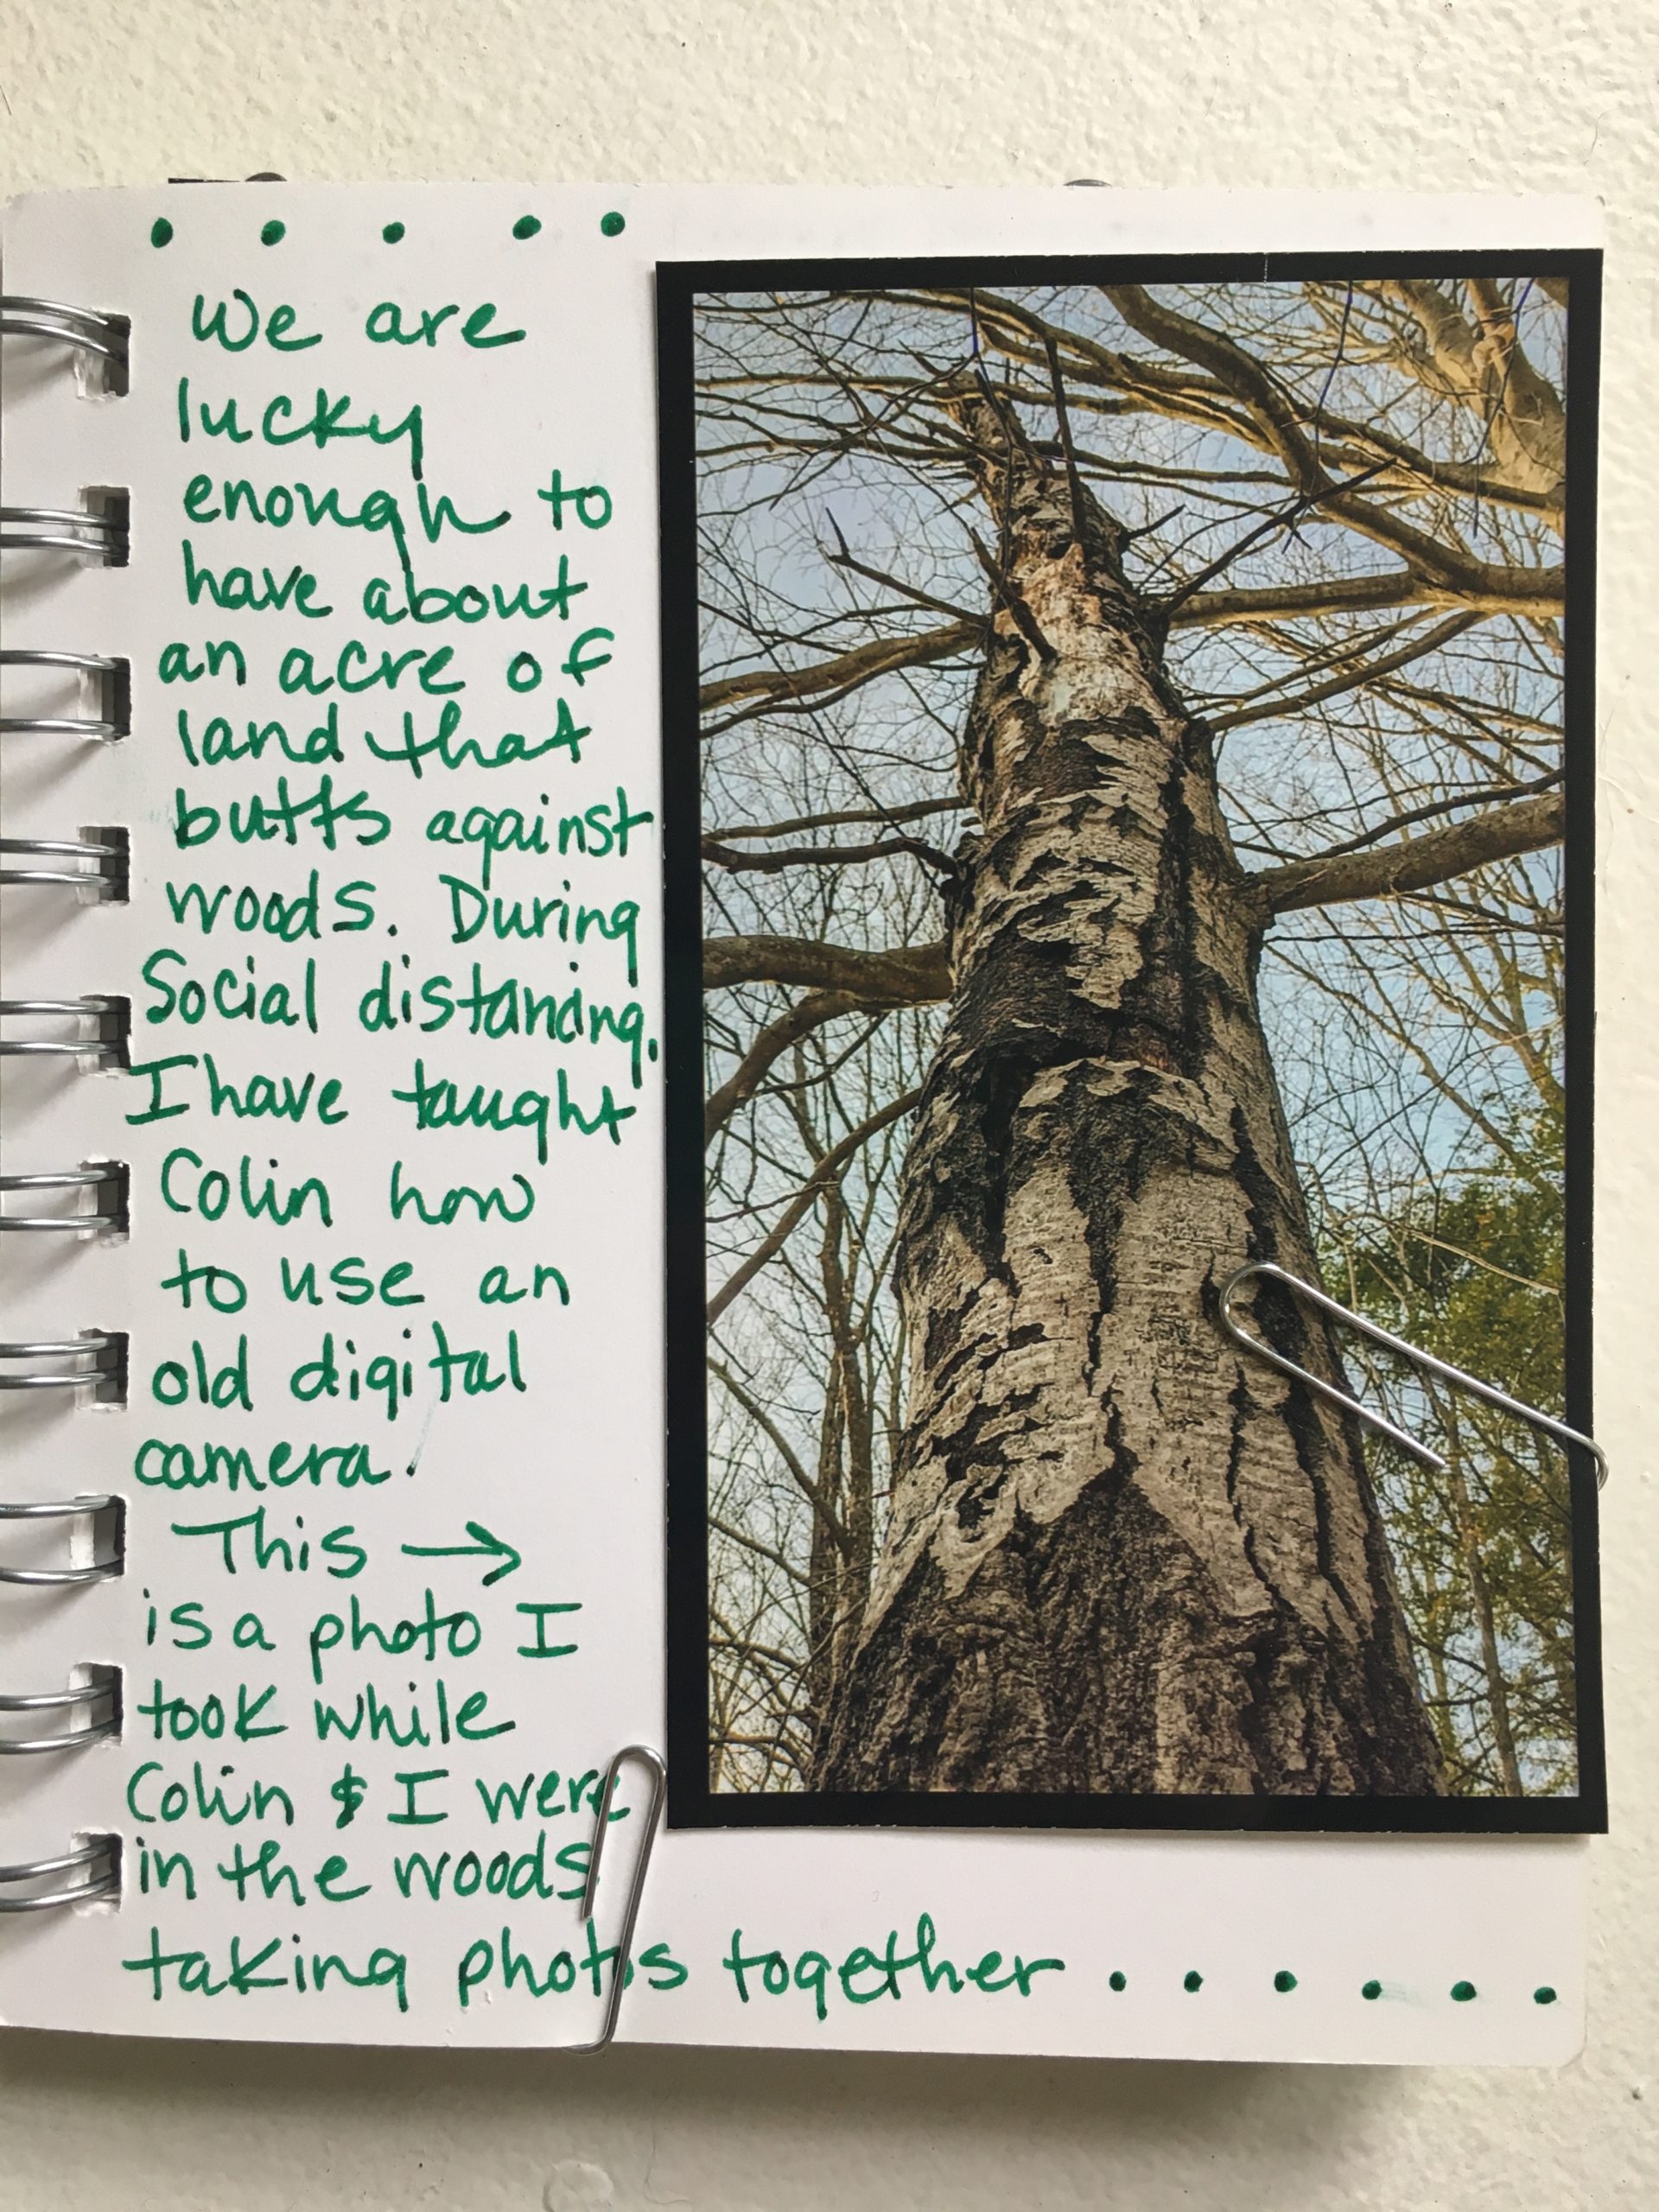 . . . . .
We are
lucky
enough to
have about
an acre of
land that
butts against
woods. During
Social distancing,
I have taught
Colin how
to use an
old digital
camera.
This →
is a photo I
took while
Colin & I were
in the woods
taking photos together . . . . . .